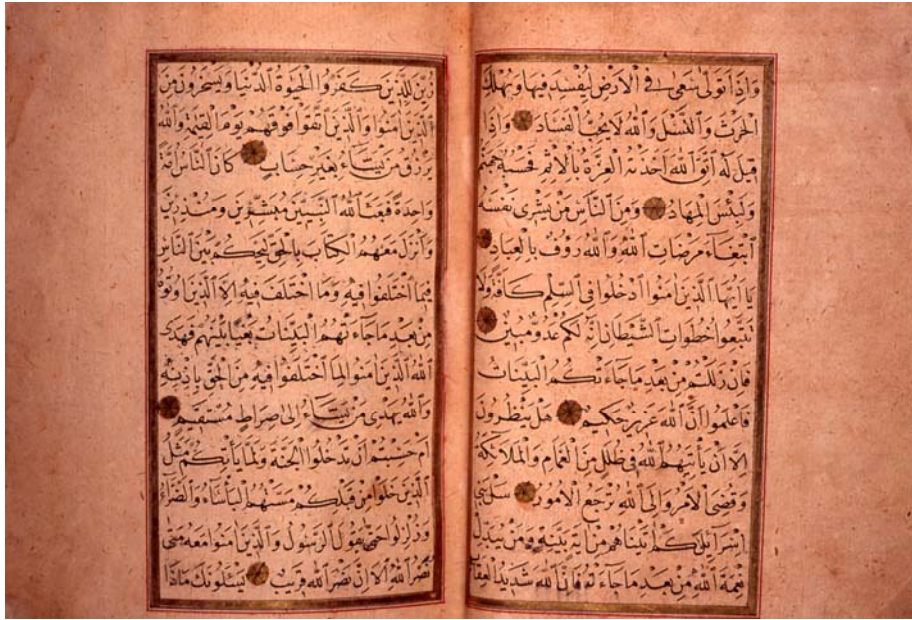 وَإِذَا تَوَلَّىٰ سَعَىٰ فِي الْأَرْضِ لِيُفْسِدَ فِيهَا وَيُهْلِكَ
الْحَرْثَ وَالنَّسْلَ وَاللَّهُ لَا يُحِبُّ الْفَسَادَ وَإِذَا
قِيلَ لَهُ اتَّقِ اللَّهَ أَخَذَتْهُ الْعِزَّةُ بِالْإِثْمِ فَحَسْبُهُ جَهَنَّمُ
وَلَبِئْسَ الْمِهَادُ وَمِنَ النَّاسِ مَنْ يَشْرِي نَفْسَهُ
ابْتِغَاءَ مَرْضَاتِ اللَّهِ وَاللَّهُ رَؤُفٌ بِالْعِبَادِ
يَا أَيُّهَا الَّذِينَ آمَنُوا ادْخُلُوا فِي السِّلْمِ كَافَّةً وَلَا
تَتَّبِعُوا خُطُوَاتِ الشَّيْطَانِ إِنَّهُ لَكُمْ عَدُوٌّ مُبِينٌ
فَإِنْ زَلَلْتُمْ مِنْ بَعْدِ مَا جَاءَتْكُمُ الْبَيِّنَاتُ
فَاعْلَمُوا أَنَّ اللَّهَ عَزِيزٌ حَكِيمٌ هَلْ يَنْظُرُونَ
إِلَّا أَنْ يَأْتِيَهُمُ اللَّهُ فِي ظُلَلٍ مِنَ الْغَمَامِ وَالْمَلَائِكَةُ
وَقُضِيَ الْأَمْرُ وَإِلَى اللَّهِ تُرْجَعُ الْأُمُورُ سَلْ بَنِي
إِسْرَائِيلَ كَمْ آتَيْنَاهُمْ مِنْ آيَةٍ بَيِّنَةٍ وَمَنْ يُبَدِّلْ
نِعْمَةَ اللَّهِ مِنْ بَعْدِ مَا جَاءَتْهُ فَإِنَّ اللَّهَ شَدِيدُ الْعِقَابِ
زُيِّنَ لِلَّذِينَ كَفَرُوا الْحَيٰوةُ الدُّنْيَا وَيَسْخَرُونَ مِنَ
الَّذِينَ آمَنُوا وَالَّذِينَ اتَّقَوْا فَوْقَهُمْ يَوْمَ الْقِيٰمَةِ وَاللَّهُ
يَرْزُقُ مَنْ يَشَاءُ بِغَيْرِ حِسَابٍ كَانَ النَّاسُ أُمَّةً
وَاحِدَةً فَبَعَثَ اللَّهُ النَّبِيِّينَ مُبَشِّرِينَ وَمُنْذِرِينَ
وَأَنْزَلَ مَعَهُمُ الْكِتَابَ بِالْحَقِّ لِيَحْكُمَ بَيْنَ النَّاسِ
فِيمَا اخْتَلَفُوا فِيهِ وَمَا اخْتَلَفَ فِيهِ إِلَّا الَّذِينَ أُوتُوهُ
مِنْ بَعْدِ مَا جَاءَتْهُمُ الْبَيِّنَاتُ بَغْيًا بَيْنَهُمْ فَهَدَى
اللَّهُ الَّذِينَ آمَنُوا لِمَا اخْتَلَفُوا فِيهِ مِنَ الْحَقِّ بِإِذْنِهِ
وَاللَّهُ يَهْدِي مَنْ يَشَاءُ إِلَىٰ صِرَاطٍ مُسْتَقِيمٍ
أَمْ حَسِبْتُمْ أَنْ تَدْخُلُوا الْجَنَّةَ وَلَمَّا يَأْتِكُمْ مَثَلُ
الَّذِينَ خَلَوْا مِنْ قَبْلِكُمْ مَسَّتْهُمُ الْبَأْسَاءُ وَالضَّرَّاءُ
وَزُلْزِلُوا حَتَّىٰ يَقُولَ الرَّسُولُ وَالَّذِينَ آمَنُوا مَعَهُ مَتَىٰ
نَصْرُ اللَّهِ أَلَا إِنَّ نَصْرَ اللَّهِ قَرِيبٌ يَسْئَلُونَكَ مَاذَا